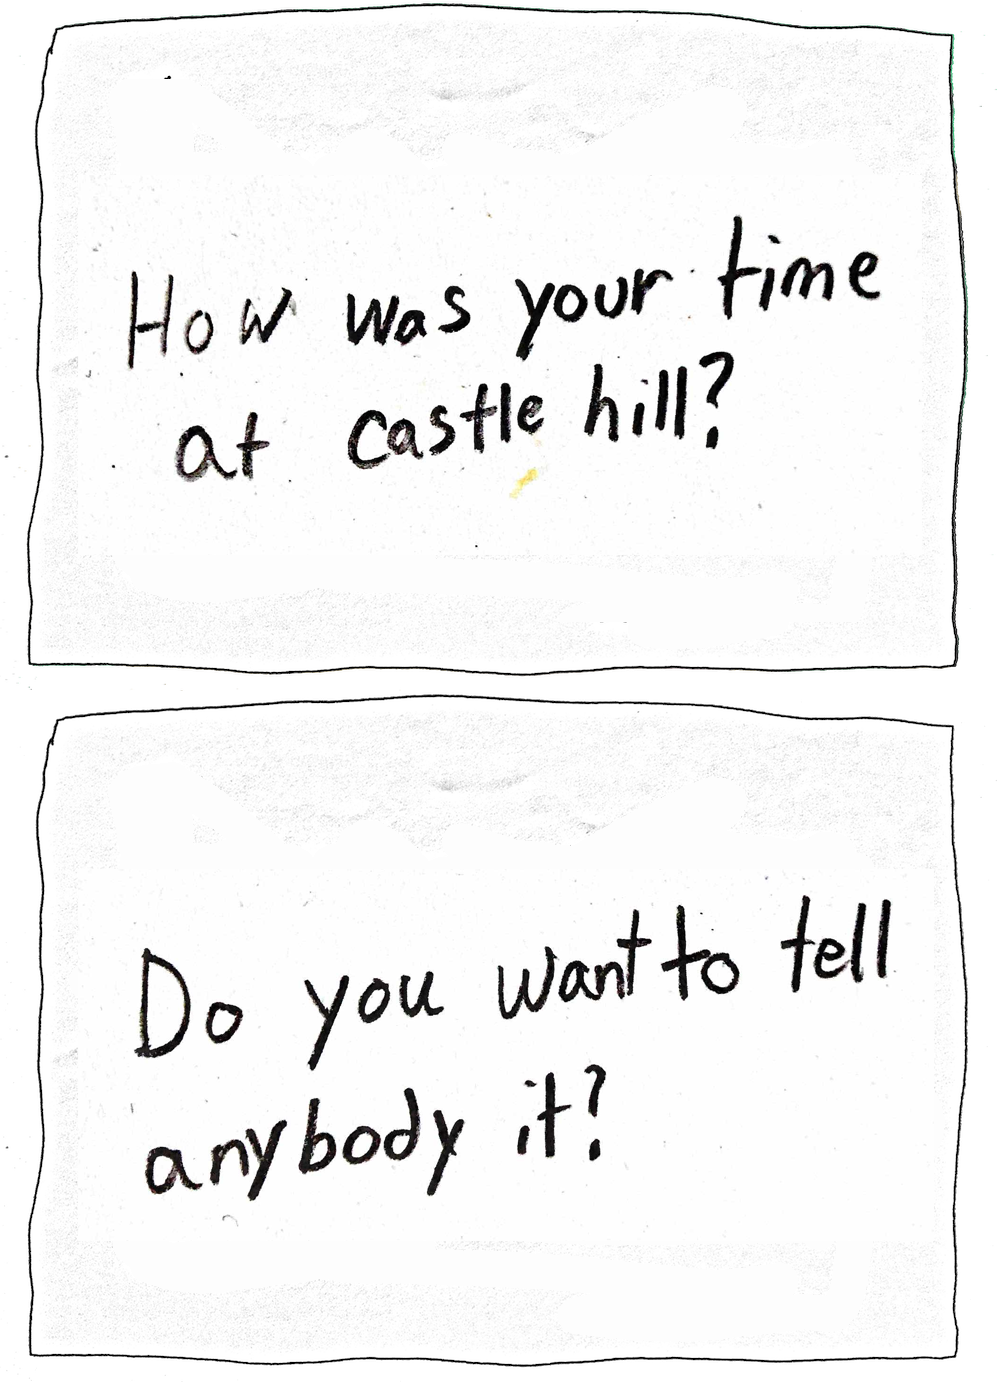 How was your time
at castle hill?
Do you want to tell
anybody it?